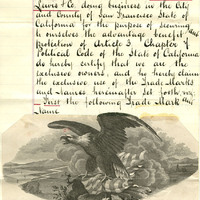 Lewis & Co. doing business in the City
and County of San Francisco State of
California for the purpose of securing
to ourselves the advantage benefit and
protection of Article 3 Chapter 7
Political Code of the State of California
do hereby certify that we are the
exclusive owners, and do hereby claim
the exclusive use of the Trade Marks
and Names hereinafter set forth,
First the following Trade Mark and
Name